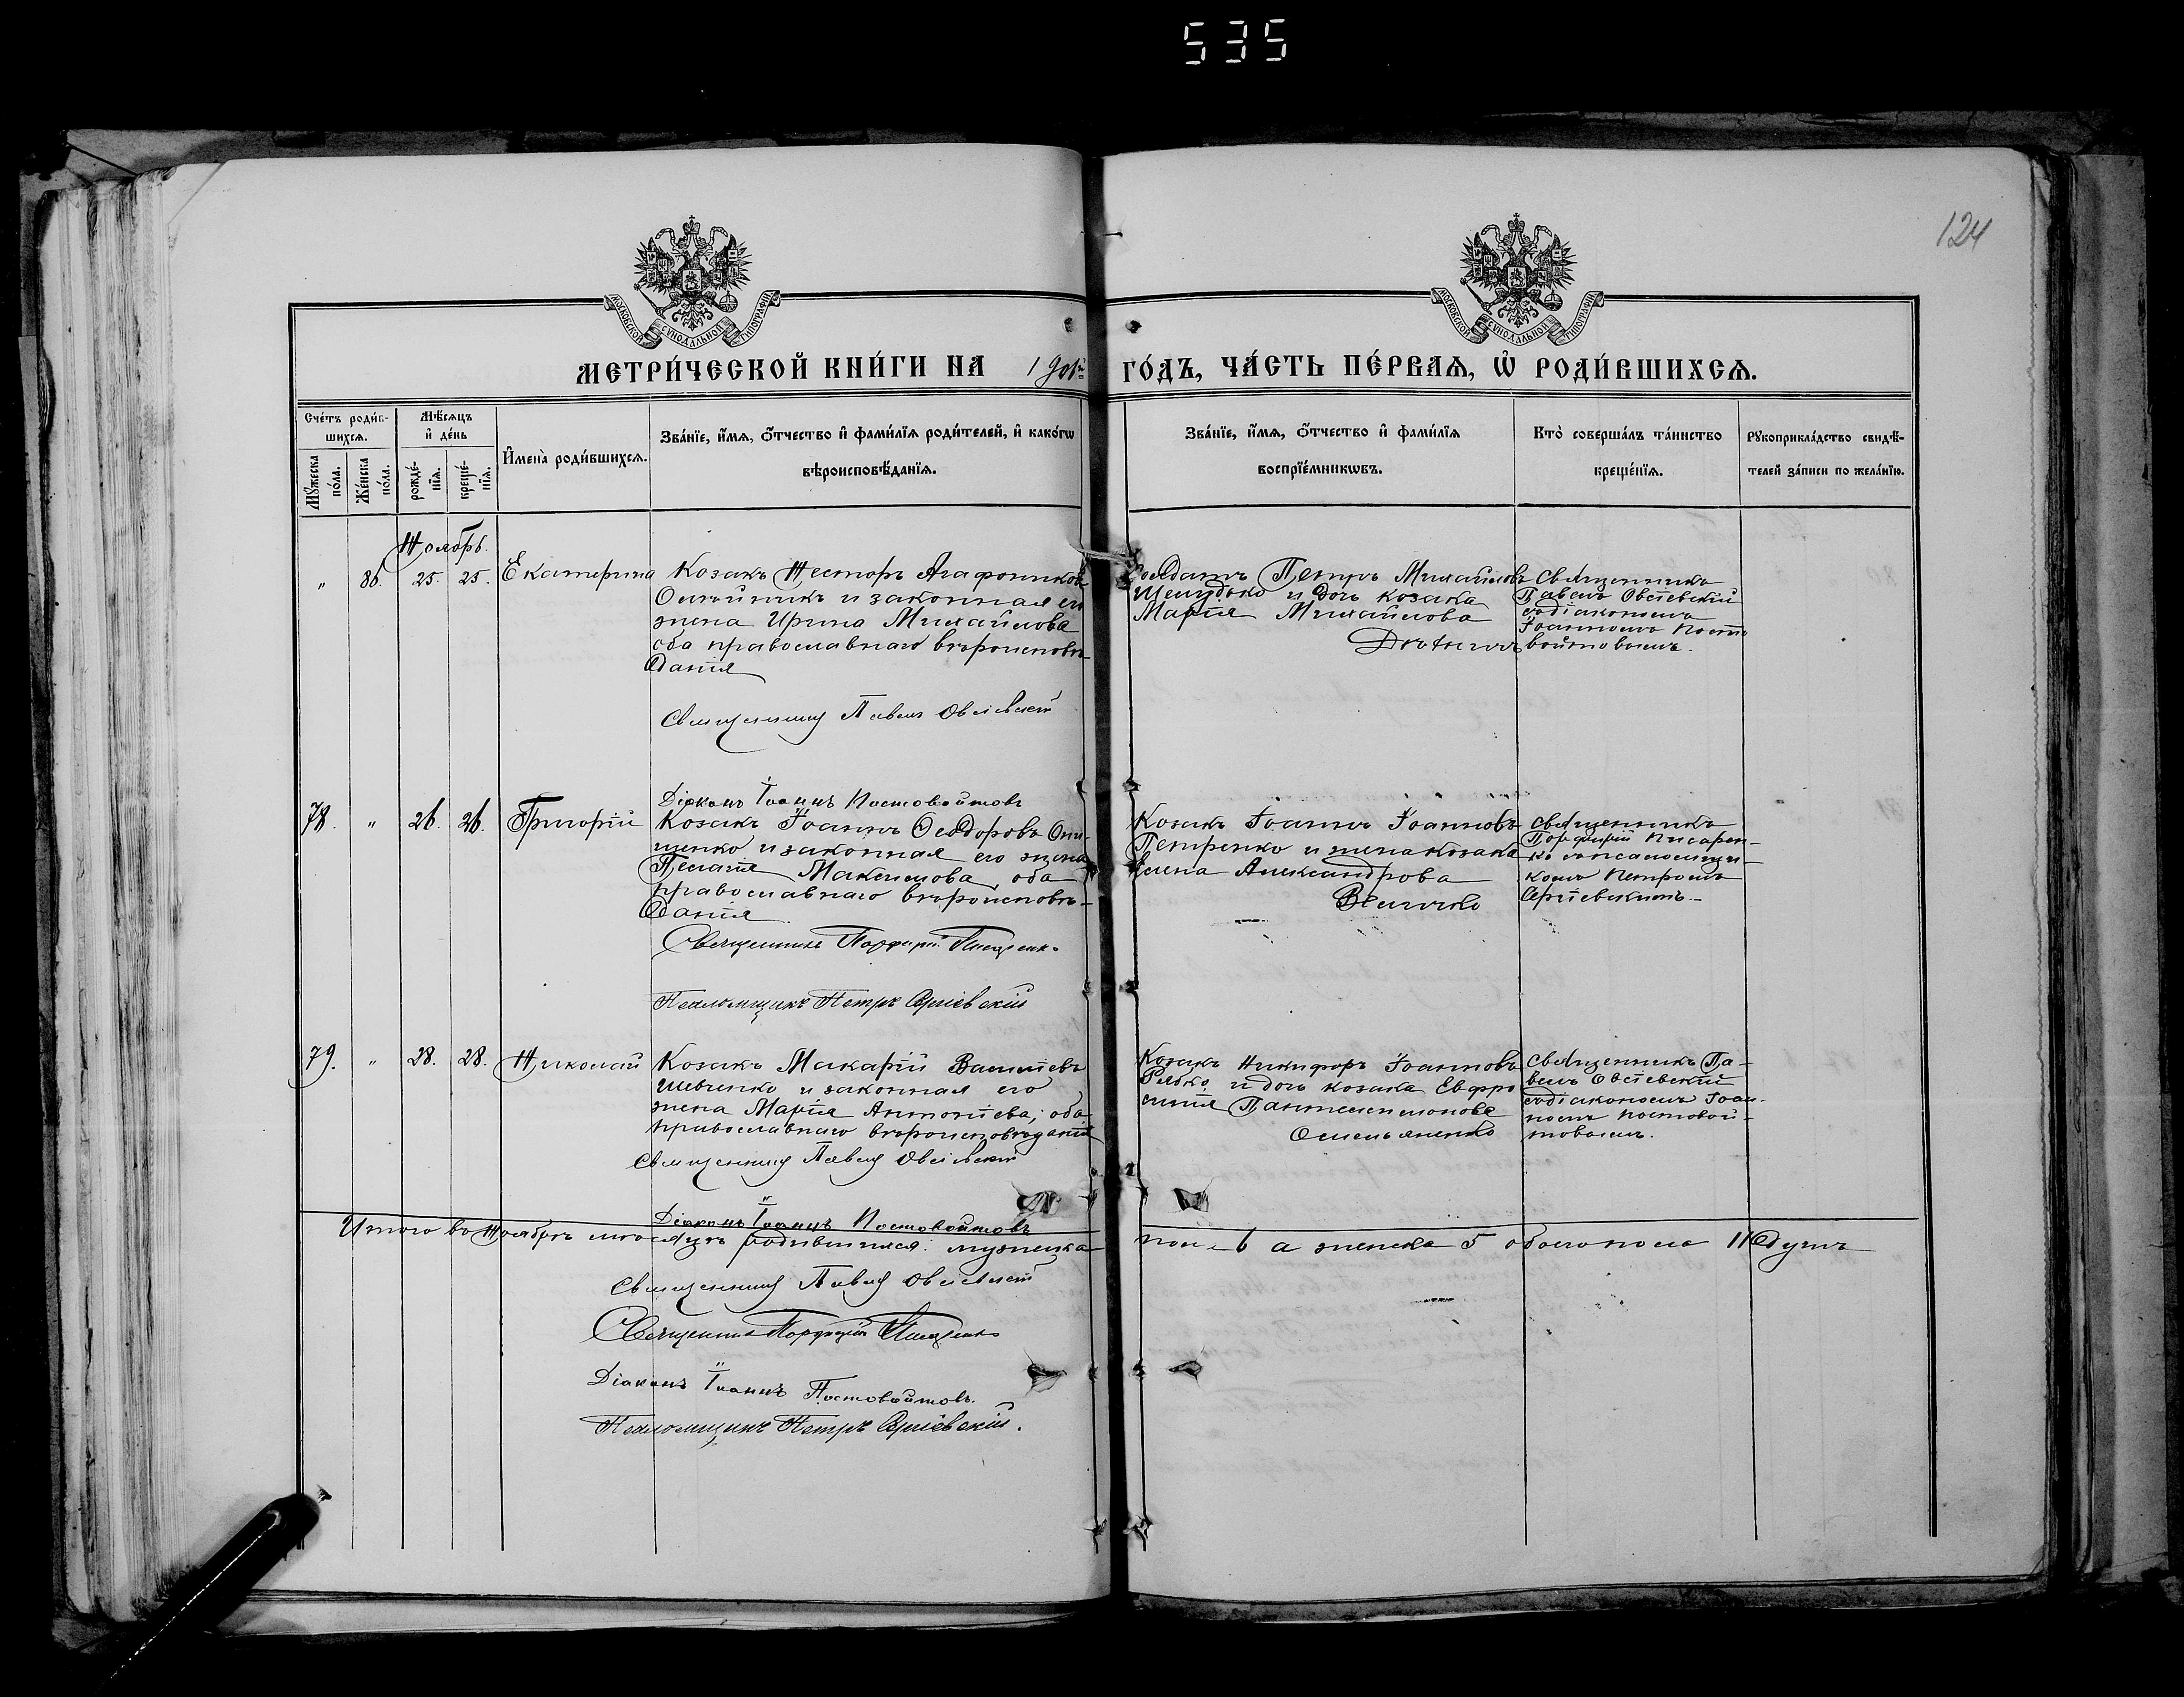 535
124
МОСКОВСКОЙ СѴНОДАЛЬНОЙ ТИПОГРАФІИ
МОСКОВСКОЙ СѴНОДАЛЬНОЙ ТИПОГРАФІИ
МЕТРИ́ЧЕСКОЙ КНИ́ГИ НА 1901й ГО́ДЪ, ЧА́СТЬ ПЕ́РВАѦ, Ѡ҆ РОДИ́ВШИХСѦ.
Сче́тъ роди́в-
шихсѧ.
Мѹ́жеска по́ла.
Же́нска по́ла.
Мѣ́сѧцъ
и҆ де́нь
рожде́-
нїѧ.
креще́-
нїѧ.
И҆мена̀ роди́вшихсѧ.
Зва́нїе, и҆́мѧ, ѻ҆́тчество и҆ фами́лїѧ роди́телей, и҆ како́гѡ
вѣроисповѣ́данїѧ.
Зва́нїе, и҆́мѧ, ѻ҆́тчество и҆ фами́лїѧ
воспрїе́мникѡвъ.
Кто̀ соверша́лъ та́инство
креще́нїѧ.
Рѹкоприкла́дство свидѣ́-
телей за́писи по жела́нїю.
Ноябрь.
" 86. 25. 25. Екатерина
Козакъ Несторъ Агафониковъ
и законная его
жена Ирина Михайлова
оба православнаго вѣроисповѣ-
данія
Священникъ Павелъ Овсіевскій
Діаконъ Іоаннъ Постовойтовъ
Солдатъ Петръ Михайловъ
и дочь козака
Марія Михайлова
Священникъ
Павелъ Овсіевскій
содіакономъ
Іоанномъ Посто
войтовымъ.
78. " 26. 26. Григорій
Козакъ Іоаннъ Ѳеодоровъ Они-
щенко и законная его жена
Пелагія Максимова, оба
православнаго вѣроисповѣ-
данія
Священникъ Порфирій
Псаломщикъ Петръ Сергіевскій
Козакъ Іоаннъ Іоанновъ
Петренко и жена козака
Елена Александрова
Величко
Священникъ
Порфирій Писарен-
ко съ псаломщи-
комъ Петромъ
Сергіевскимъ.
79. " 28. 28. Николай
Козакъ Макарій Василіевъ
Шевченко и законная его
жена Марія Антоніева, оба
православнаго вѣроисповѣданія
Священникъ Павелъ Овсіевскій
Діаконъ Іоаннъ Постовойтовъ
Козакъ Никифоръ Іоанновъ
Рябко и дочь козака Евфро
синія Пантелеимонова
Омельяненко
Священникъ Па-
велъ Овсіевскій
содіакономъ Іоан-
номъ Постовой-
товымъ.
Итого въ Ноябрѣ мѣсяцѣ родившихся: мужеска пола 6 а женска 5 обоего пола 11 душъ
Священникъ Павелъ Овсіевскій
Священникъ Порфирій
Діаконъ Іоаннъ Постовойтовъ.
Псаломщикъ Петръ Сергіевскій.